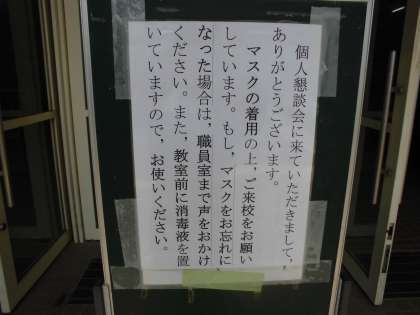 個人懇談会に来ていただきまして，
ありがとうございます。
マスクの着用の上，ご来校をお願い
しています。もし，マスクをお忘れに
なった場合は，職員室まで声をおかけ
ください。また，教室前に消毒液を置
いていますので，お使いください。